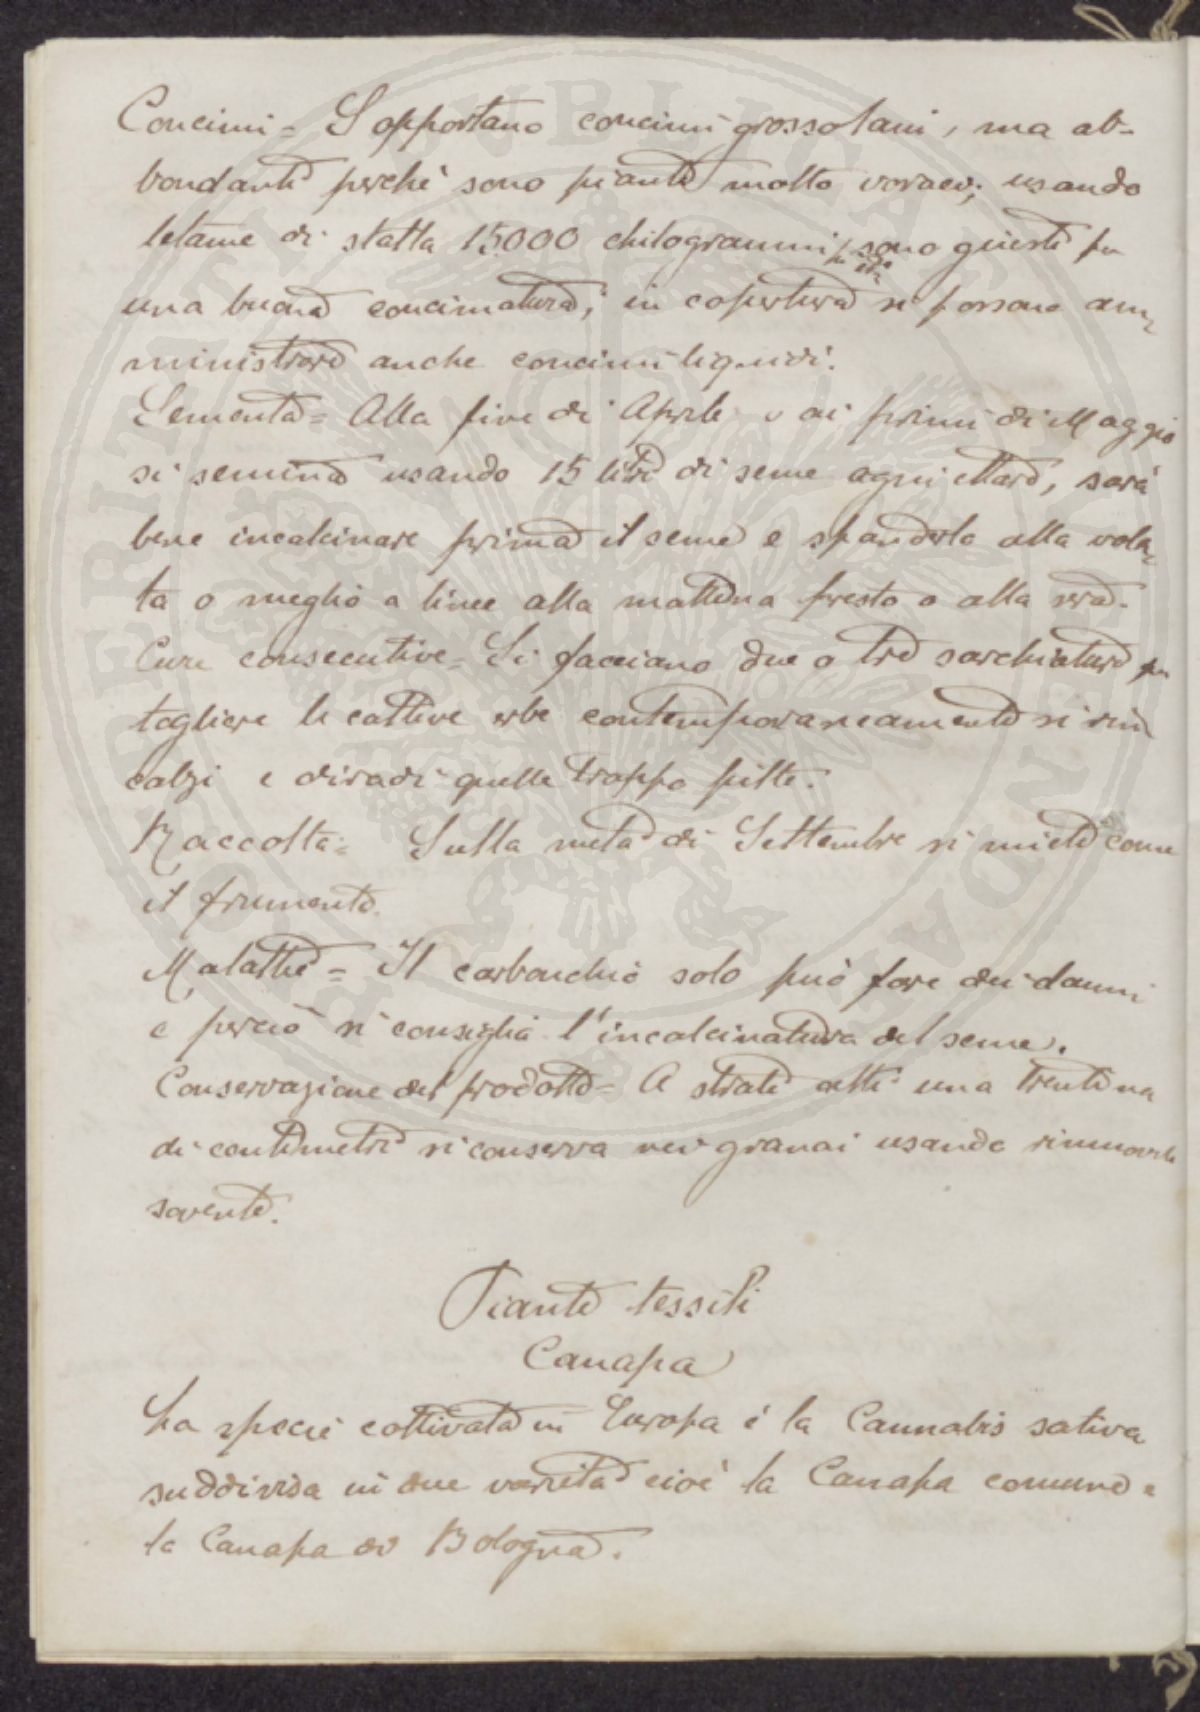 Concimi = Sopportano concimi grossolani, ma ab-
bondanti perchè sono piante molto voraci; usando
letame di stalla 15000 chilogrammi sono questi per
una buona concimatura; in copertura si possono am,
ministrare anche concimi liquidi.
Sementa = Alla fine di Aprile o ai primi di Maggio
si semina usando 15 litri di seme ogni ettaro, sarà
bene incalcinare prima il seme e spanderlo alla vola,
ta o meglio a linee alla mattina presto o alla sera.
Cure consecutive = Si facciano due o tre sarchiature per
togliere le cattive erbe contemporaneamente si rin
calzi e diradi quelle troppo fitte.
Raccolta = Sulla metà di Settembre si miete come
il frumento.
Malattie = Il carbonchio solo può fare dei danni
e perciò si consiglia l'incalcinatura del seme.
Conservazione del prodotto = A strati alti una trentina
di centimetri si conserva nei granai usando rimuoverlo
sovente.
Piante tessili
Canapa
La specie coltivata in Europa è la Cannabis sativa
suddivisa in due varietà cioè la Canapa comune e
la Canapa di Bologna.
PUBLICAE